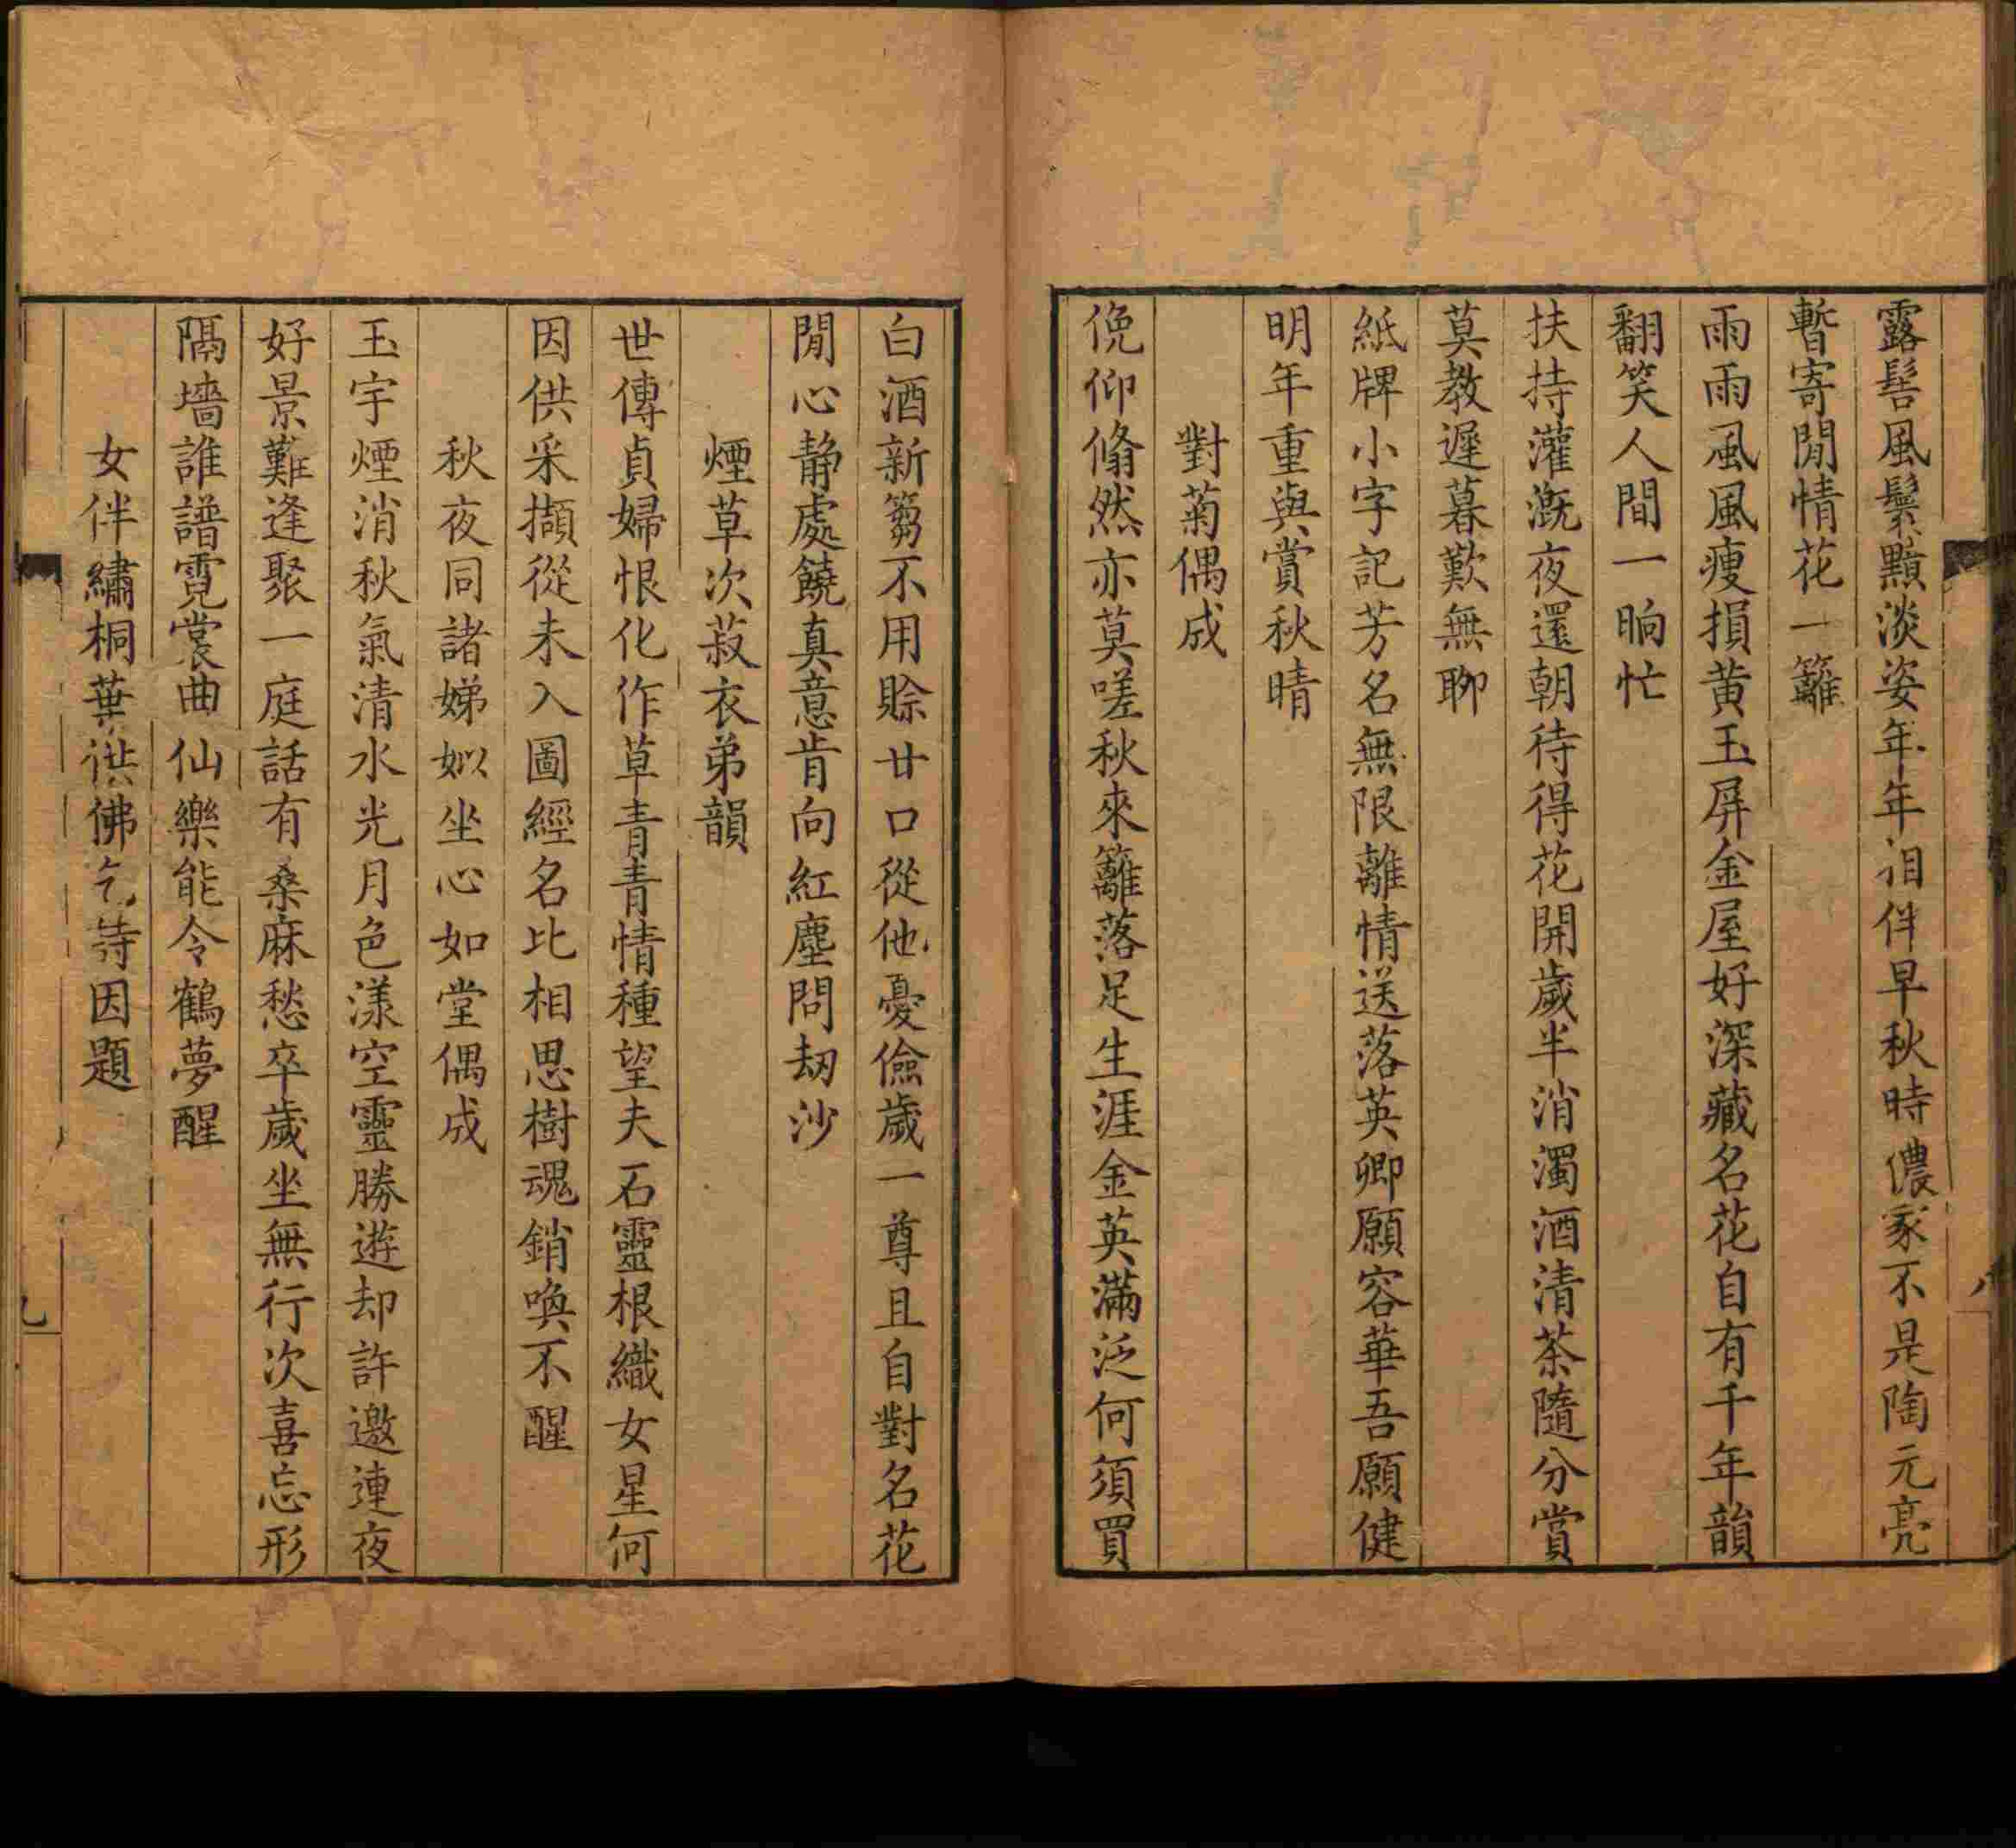 露髻風鬟黯淡姿年年泪伴早秋時儂家不是陶元亮
暫寄閒情花一籬
雨雨風風瘦損黄玉屏金屋好深藏名花自有千年韻
翻笑人間一晌忙
扶持灌漑夜還朝待得花開歲半消濁酒清茶隨分賞
莫教遲暮歎無聊
紙牌小字記芳名無限離情送落英卿願容華吾願健
明年重與賞秋晴
對菊偶成
俛仰翛然亦莫嗟秋來籬落足生涯金英滿泛何須買
八
白酒新篘不用賒廿口從他憂儉歲一尊且自對名花
閒心静處饒真意肯向紅塵問劫沙
煙草次菽衣弟韻
世傳貞婦恨化作草青青情種望夫石靈根織女星何
因供采擷從未入圖經名比相思樹魂銷喚不醒
秋夜同諸娣姒坐心如堂偶成
玉宇煙消秋氣清水光月色漾空靈勝遊却許邀連夜
好景難逢聚一庭話有桑麻愁卒歲坐無行次喜忘形
隔墻誰譜霓裳曲仙樂能令鶴夢醒
女伴繡桐葉供佛乞詩因題